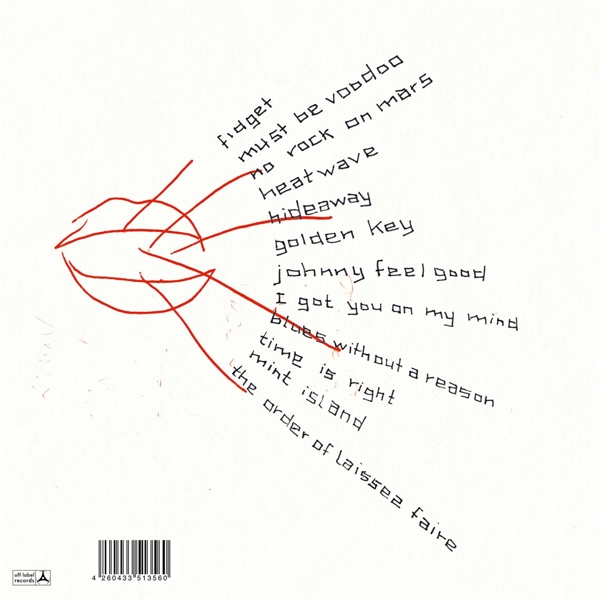 fidget
must be voodoo
no rock on mars
heatwave
hideaway
golden key
johnny feel good
I got you on my mind
blues without a reason
time is right
mint island
the order of laissez faire
off label
records
4 260433 513560